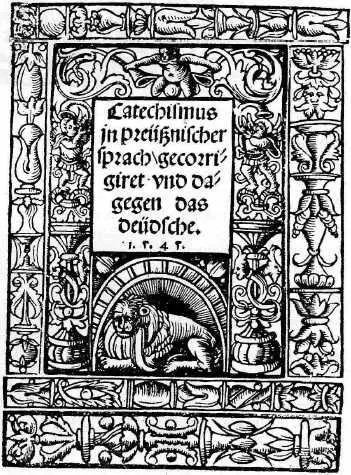 Catechismus
jn preüßnischer
sprach\gecorri-
giret vnd da-
gegen das
deüdsche.
1.5.4.5.